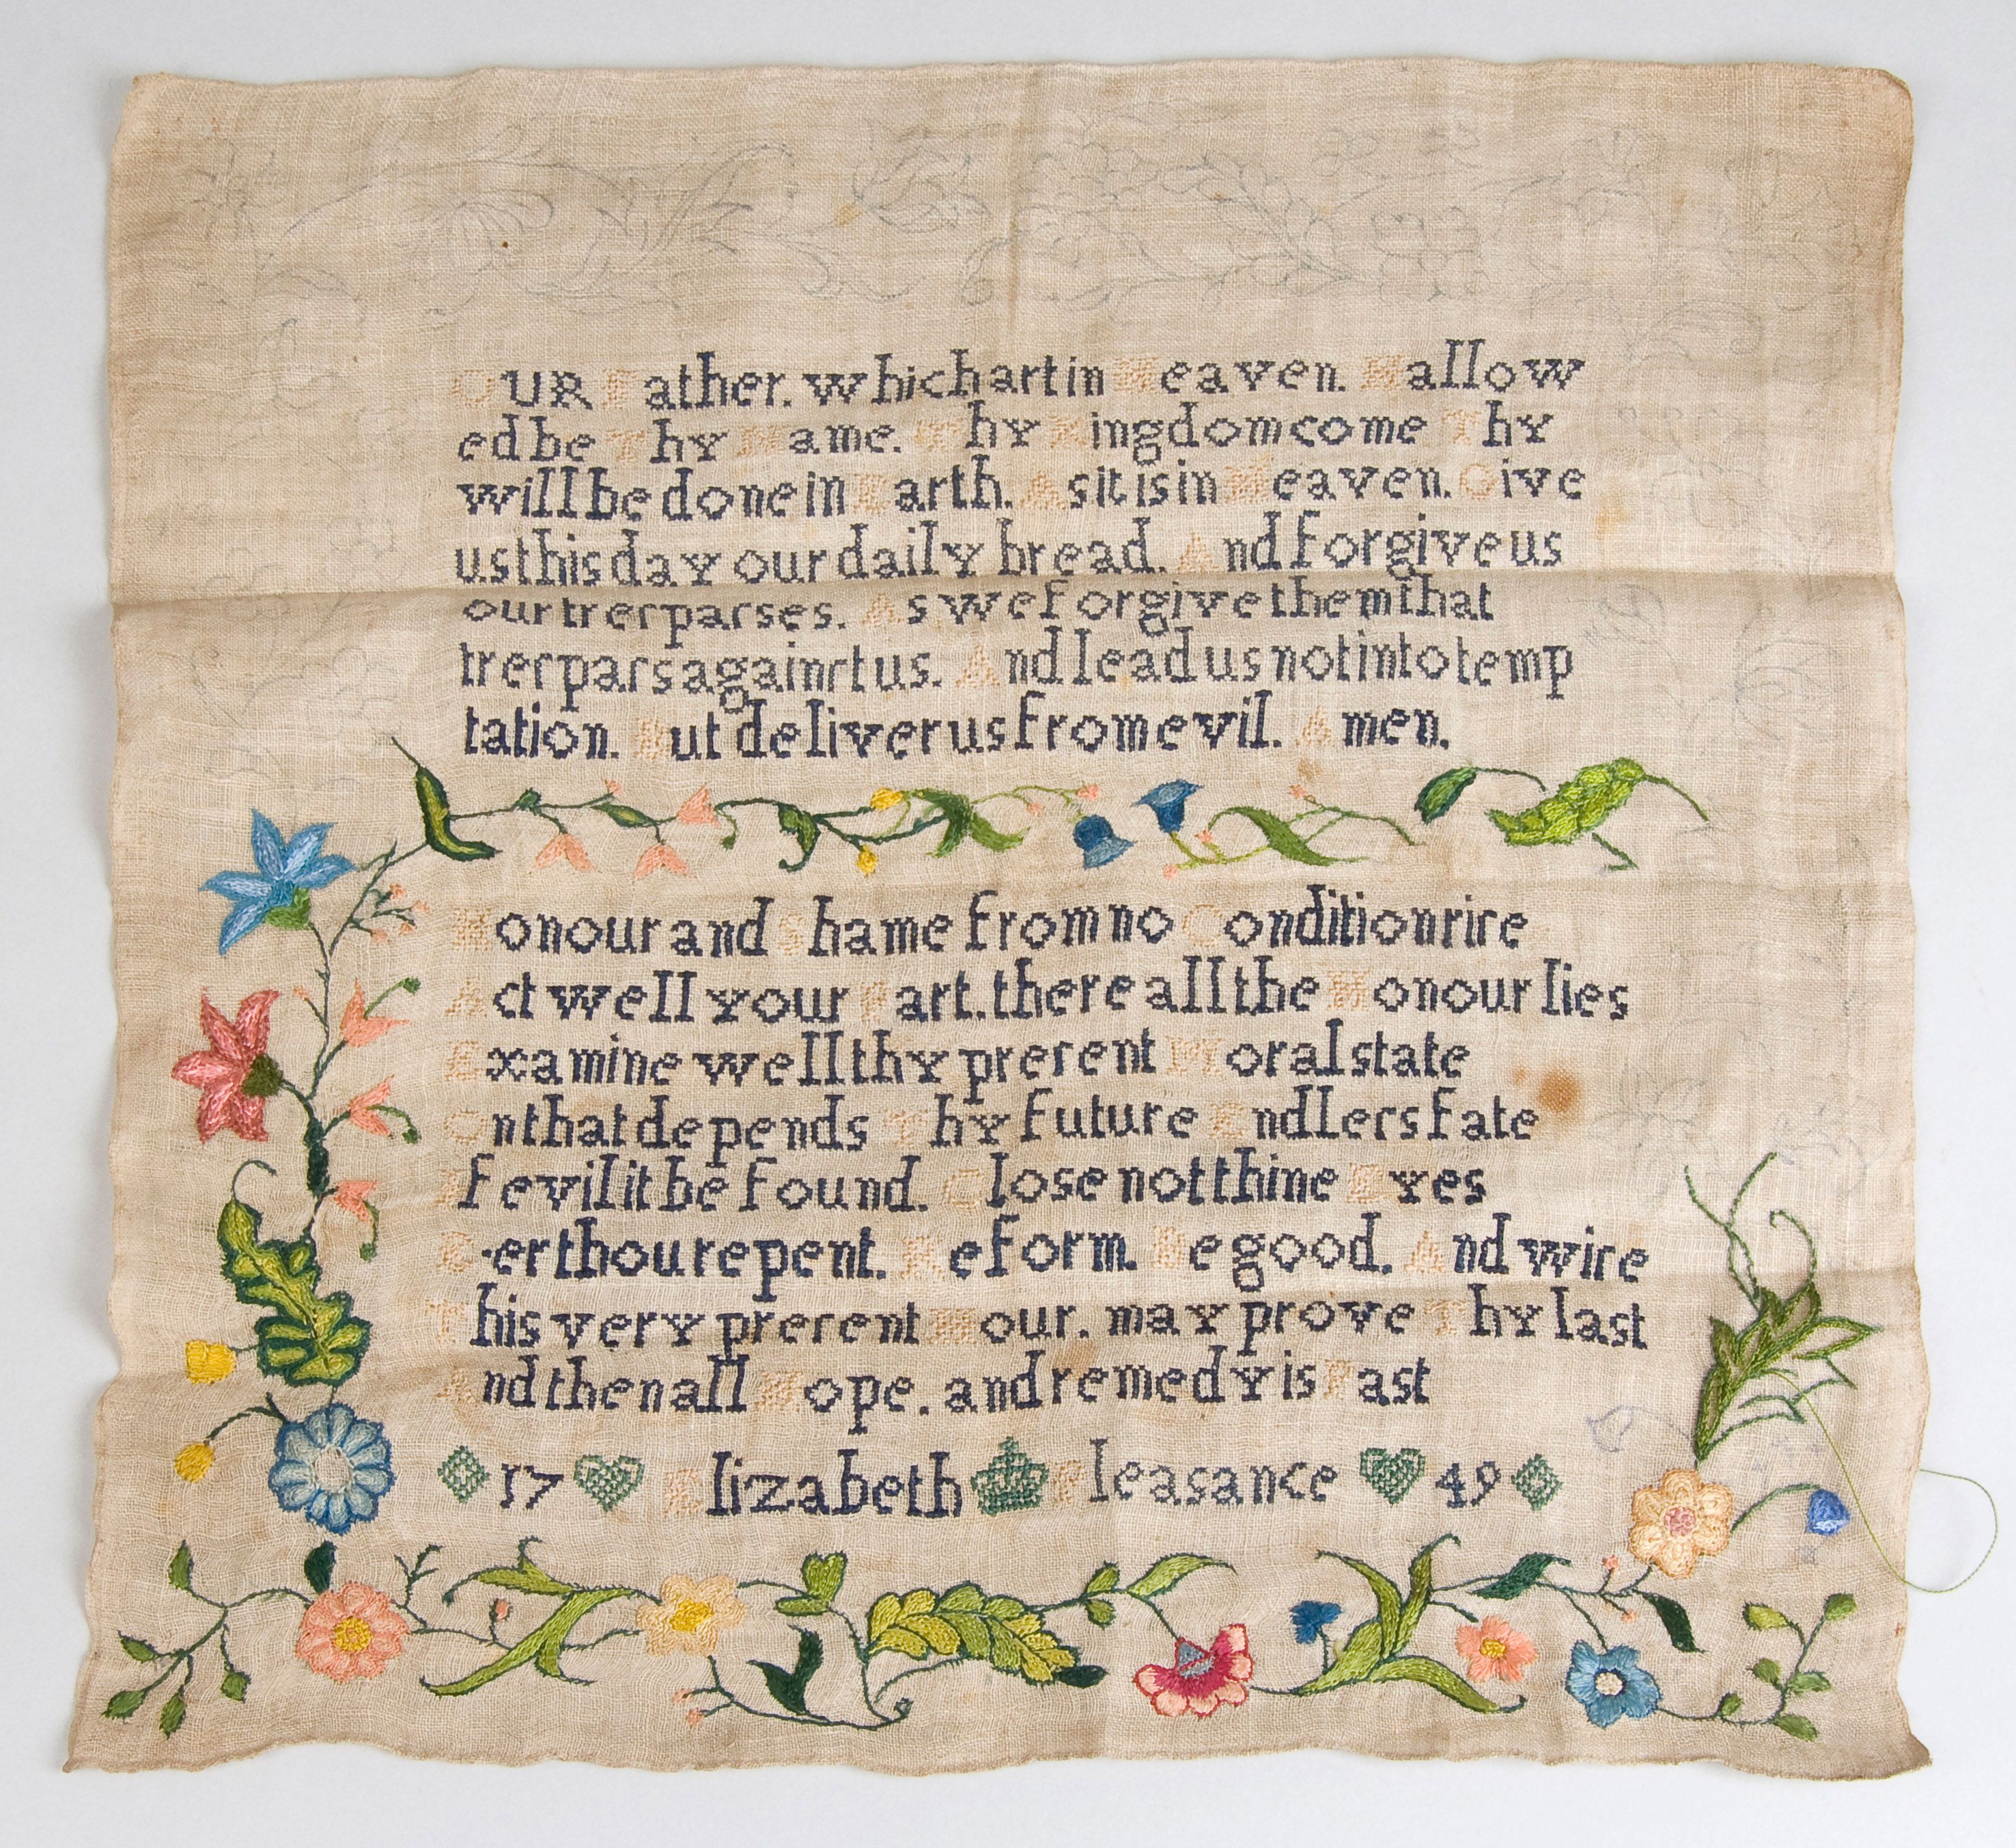 OUR Father. which art in Heaven. Hallow
ed be Thy Name. Thy Kingdom come Thy
will be done in Earth. As it is in Heaven. Give
us this day our daily bread. And forgive us
our treſpaſses. As we forgive them that
treſpaſs againſt us. And lead us not into temp
tation. But deliver us from evil. Amen.
Honour and Shame from no Condition riſe
Act well your Part. there all the Honour lies
Examine well thy preſent Moral state
On that depends Thy future Endleſs fate
If evil it be found. Close not thine Eyes
E·er thou repent. Reform. Be good. And wiſe
This very preſent Hour. may prove Thy last
And then all Hope. and remedy is Past
17 Elizabeth Pleasance 49